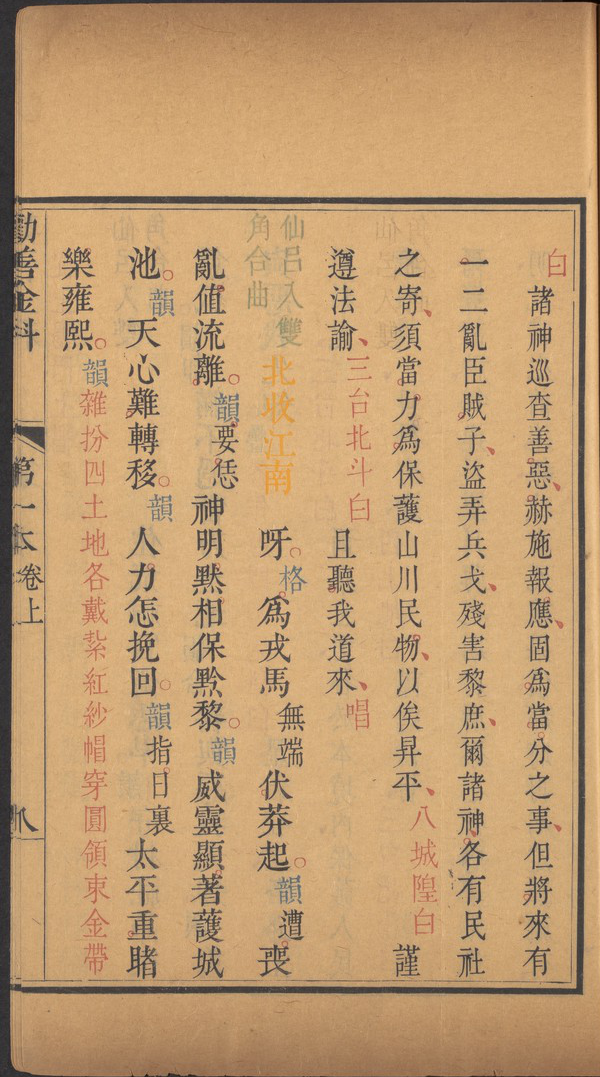 白
諸神巡查善惡赫施報應固爲當分之事但將來有
一二亂臣賊子盜弄兵戈殘害黎庶爾諸神各有民社
之寄須當力爲保護山川民物以俟昇平八城隍白謹
遵法諭三台北斗白且聽我道來唱
仙呂入雙
角合曲
北收江南
呀格爲戎馬無端伏莽起韻遭喪
亂值流離韻要恁神明黙相保黔黎韻威靈顯著護城
池韻天心難轉移韻人力怎挽回韻指日裏太平重睹
樂雍熙韻雜扮四土地各戴紮紅紗帽穿圓領束金帶
勸善金科
第一本卷上
八